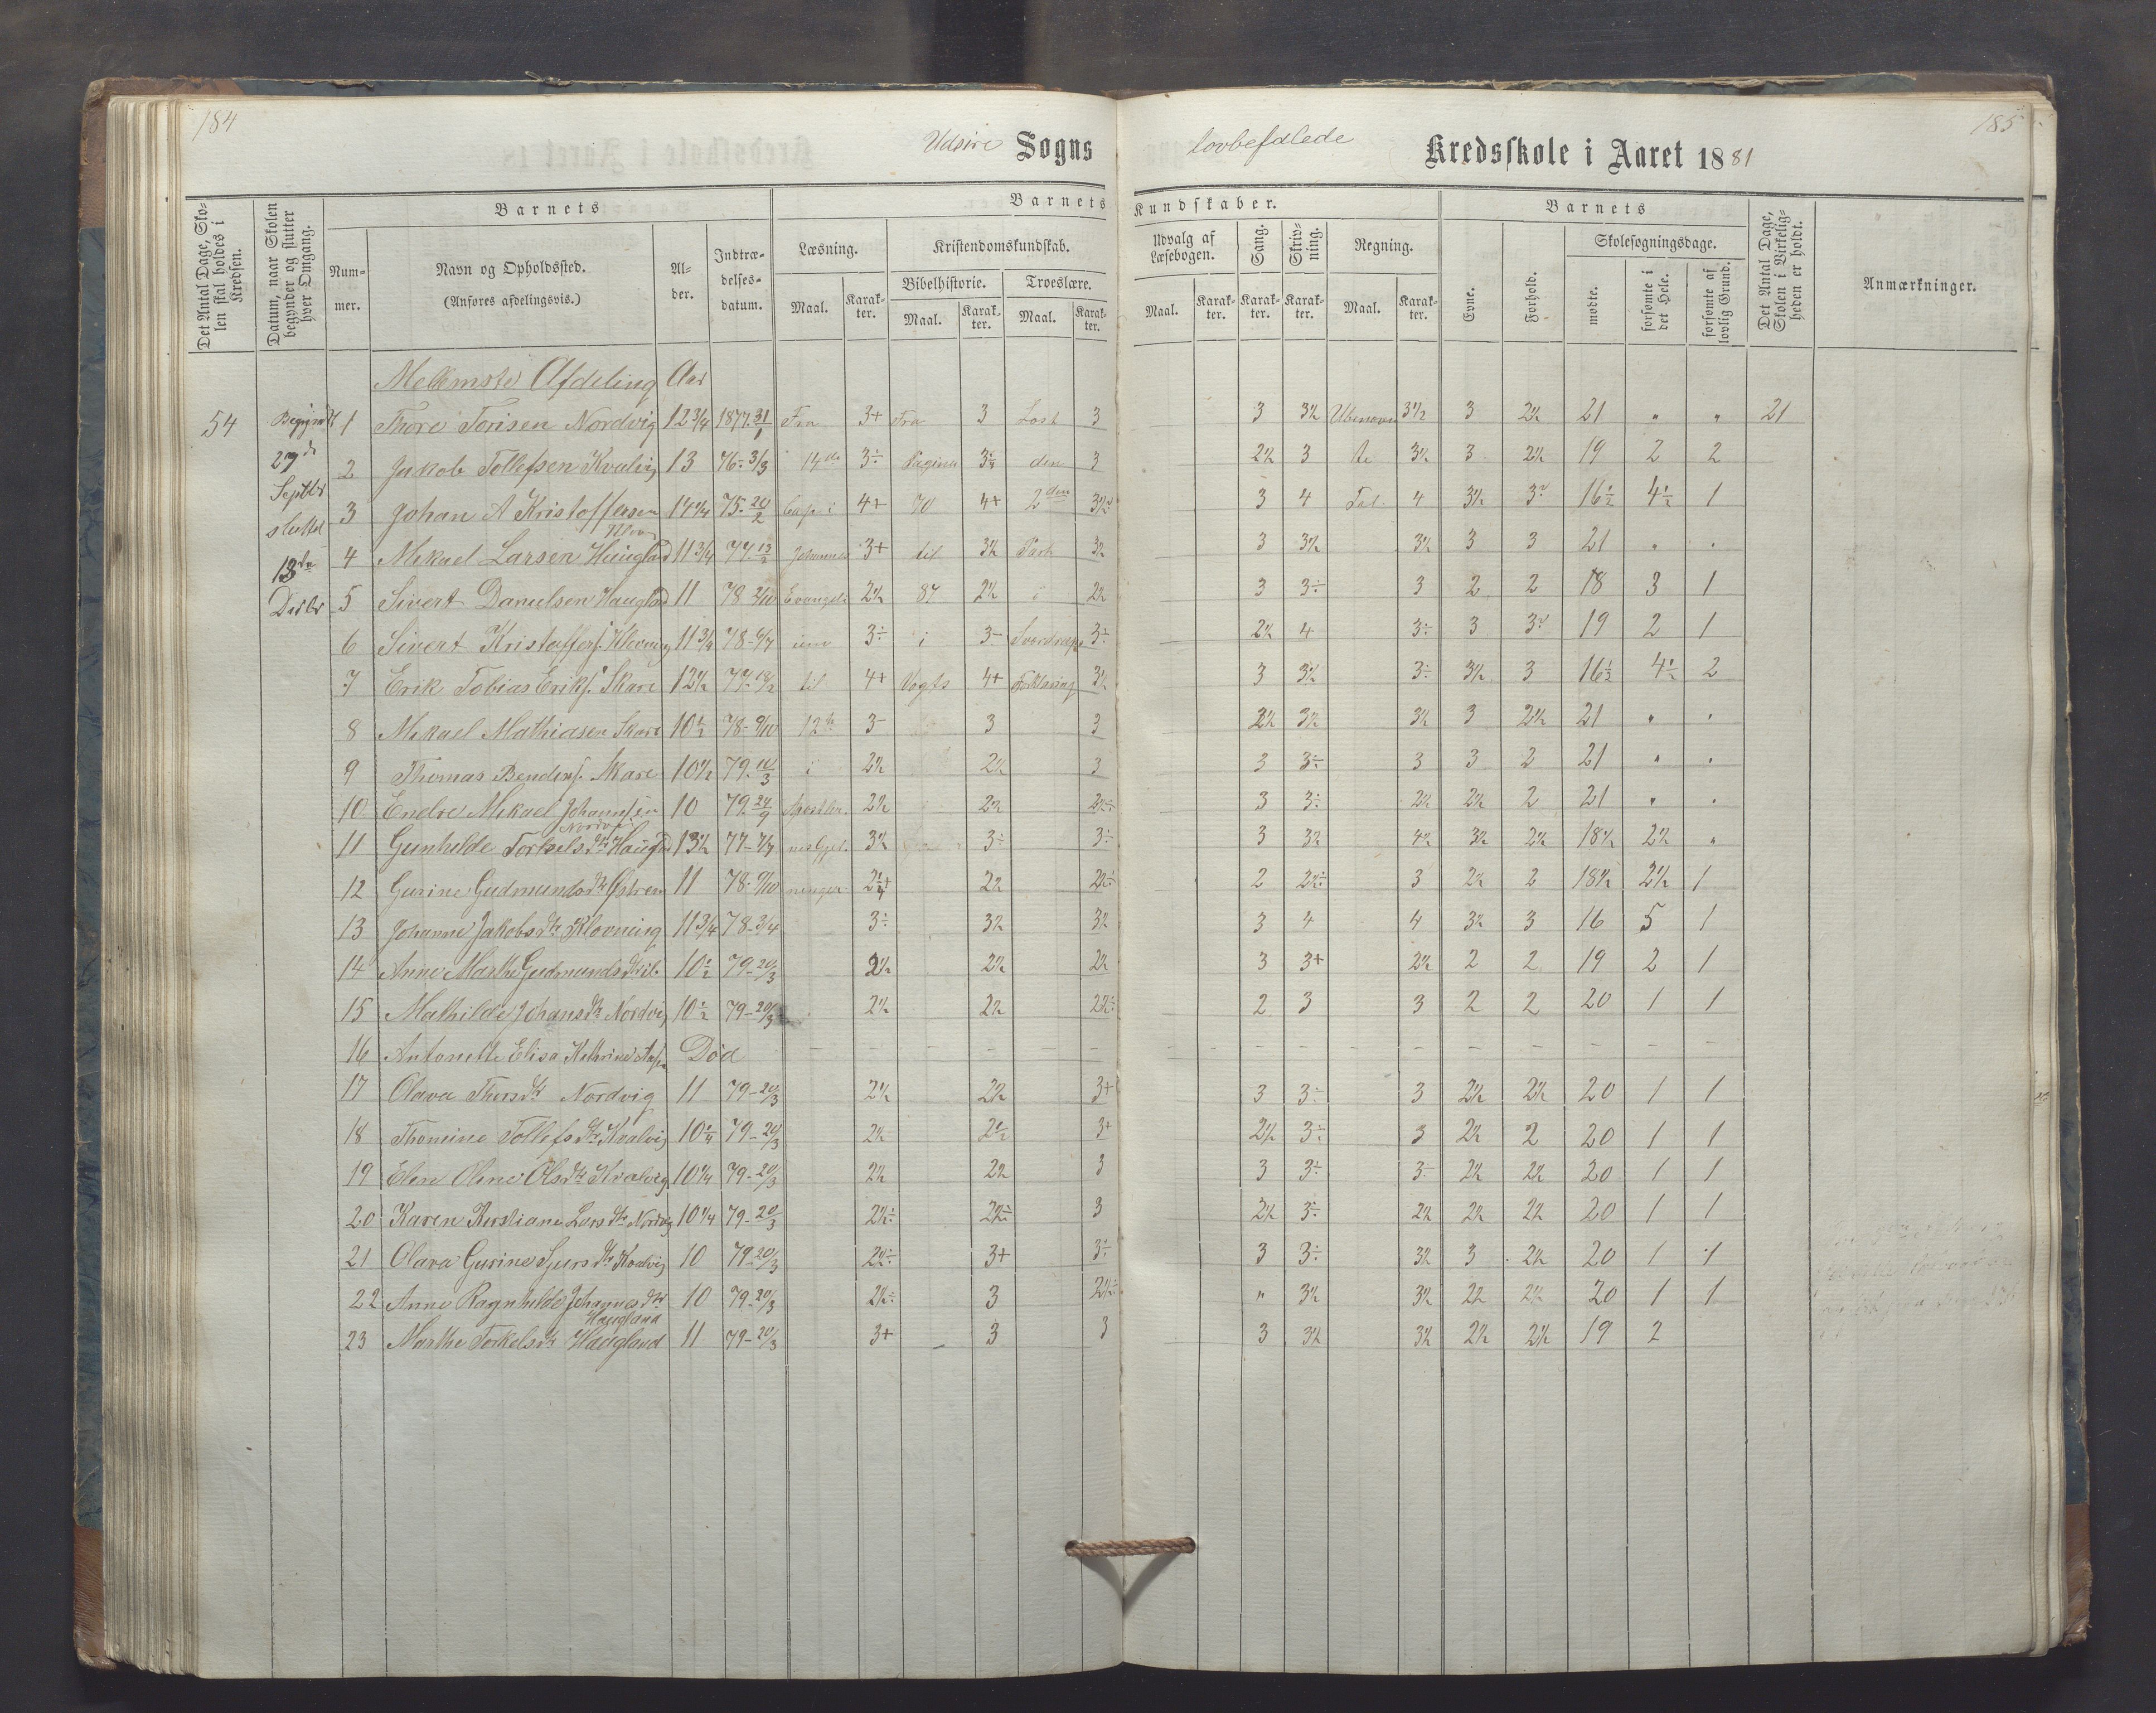 184
Udsire Sogns
lovbefalede Kredsskole i Aaret 1881
185
Det Antal Dage, Skolen skal holdes i Kredsen.
Datum, naar Skolen begynder og slutter hver Omgang.
Barnets
Nummer.
Navn og Opholdssted.
(Anføres afdelingsvis.)
Alder.
Indtrædelsesdatum.
Barnets Kundskaber.
Læsning.
Maal. Karakter.
Kristendomskundskab.
Bibelhistorie. Troeslære.
Maal. Karakter. Maal. Karakter.
Udvalg af Læsebogen.
Maal. Karakter.
Sang. Karakter.
Skrivning. Karakter.
Regning.
Maal. Karakter.
Barnets
Evne. Forhold.
Skolesøgningsdage.
mødte. forsømte i det Hele. forsømte af lovlig Grund.
Det Antal Dage, Skolen i Virkeligheden er holdt.
Anmærkninger.
Mellemste Afdeling Aar
54 Begyndt 1 Thore Torisen Nordvig 12 3/4 1877 31/1 Fra 3+ Fra 3 3 3 3½ 3½ 3 2½ 21 " " 21
27de 2 Jakob Tollefsen Kvalvig 13 76 3/3 14de 3÷ Pagina den 3 2½ 3 3½ 3 2½ 19 2 2
Septbr 3 Johan A Kristoffersen 75 20/2 Cap i 4+ 70 4+ 2den 3 4 Tal 4 3½ 16½ 4½ 1
sluttet 4 Mikael Larsen Haugland 11 3/4 77 Johannes 3+ til 3½ Part 3½ 3 3½ 3½ 3 3 21 " "
13de 5 Sivert Danielsen Haugland 11 78 Evangeli 2½ 87 2½ i 2½ 3 3÷ 3 2 2 18 3 1
Decbr 6 Sivert Kristoffers. Klovning 11 3/4 78 um 3÷ i 3- Sverdrups 3÷ 2½ 4 3÷ 3 19 2 1
7 Erik Tobias Eriks. Skare 12½ 77 til 4+ Vogts 4+ Forklaring 3½ 3 3½ 3÷ 3½ 3 16½ 4½ 2
8 Mikael Mathiasen Skare 10½ 78 9/10 12te 3- 3 3 2½ 3½ 3½ 3 2½ 21 " "
9 Thomas Bendixs. Skare 10½ 79 i 2½ 2½ 3 3 3÷ 3 3 2 21 " "
10 Endre Mikael Johannesen 10 79 24/9 Apostler 2½ 2½ 2½÷ 3 3÷ 2½ 2½ 2 21 " "
11 Gunhilde Torkelsdtr Haugld 13½ 77 nes Gjer 3½ 3÷ 3÷ 3 3½ 4½ 3½ 2½ 18½ 2½ "
12 Gurine Gudmundsdtr Østrem 11 78 9/10 ninger 2½ 2½÷ 2 2½÷ 3 2½ 2 18½ 2½ 1
13 Johanne Jakobsdtr Klovning 11 3/4 78 3/4 3÷ 3½ 3½ 3 4 4 3½ 3 16 5 1
14 Anne Marthe Gudmundsdtr 10½ 79 20/3 2½ 2½ 2½ 3 3+ 2½ 2 2 19 2 1
15 Mathilde Johansdtr Nordvig 10½ 79 20/3 2½ 2½ 2½÷ 2 3 3 2 2 20 1 1
16 Antonette Elisa Kathrine Død
17 Olava Thorsdtr Nordvig 11 79 20/3 2½ 2½ 3+ 3 3÷ 3 2½ 2½ 20 1 1
18 Thomine Tollefsdtr Kvalvig 10¼ 79 20/3 2½ 2½ 3+ 2½ 3÷ 3 2½ 2 20 1 1
19 Elen Oline Olsdtr Kvalvig 10¼ 79 20/3 2½ 2½ 3 3 3÷ 3÷ 2½ 2½ 20 1 1
20 Karen Kirstiane Larsdtr Nordvig 10¼ 79 20/3 2½÷ 2½÷ 3 2½ 3÷ 2½ 2½ 2½ 20 1 1
21 Olava Gurine Sjursdtr Kvalvig 10 79 20/3 2½÷ 3+ 3÷ 3 3÷ 3½ 3 2½ 20 1 1
22 Anne Ragnhilde Johannesdtr 10 79 20/3 2½÷ 3 2½÷ " 3½ 3½ 2½ 2½ 20 1 1
Haugland
23 Marthe Torkelsdtr Haugland 11 79 20/3 3+ 3 3 3 3½ 3½ 2½ 2½ 19 2